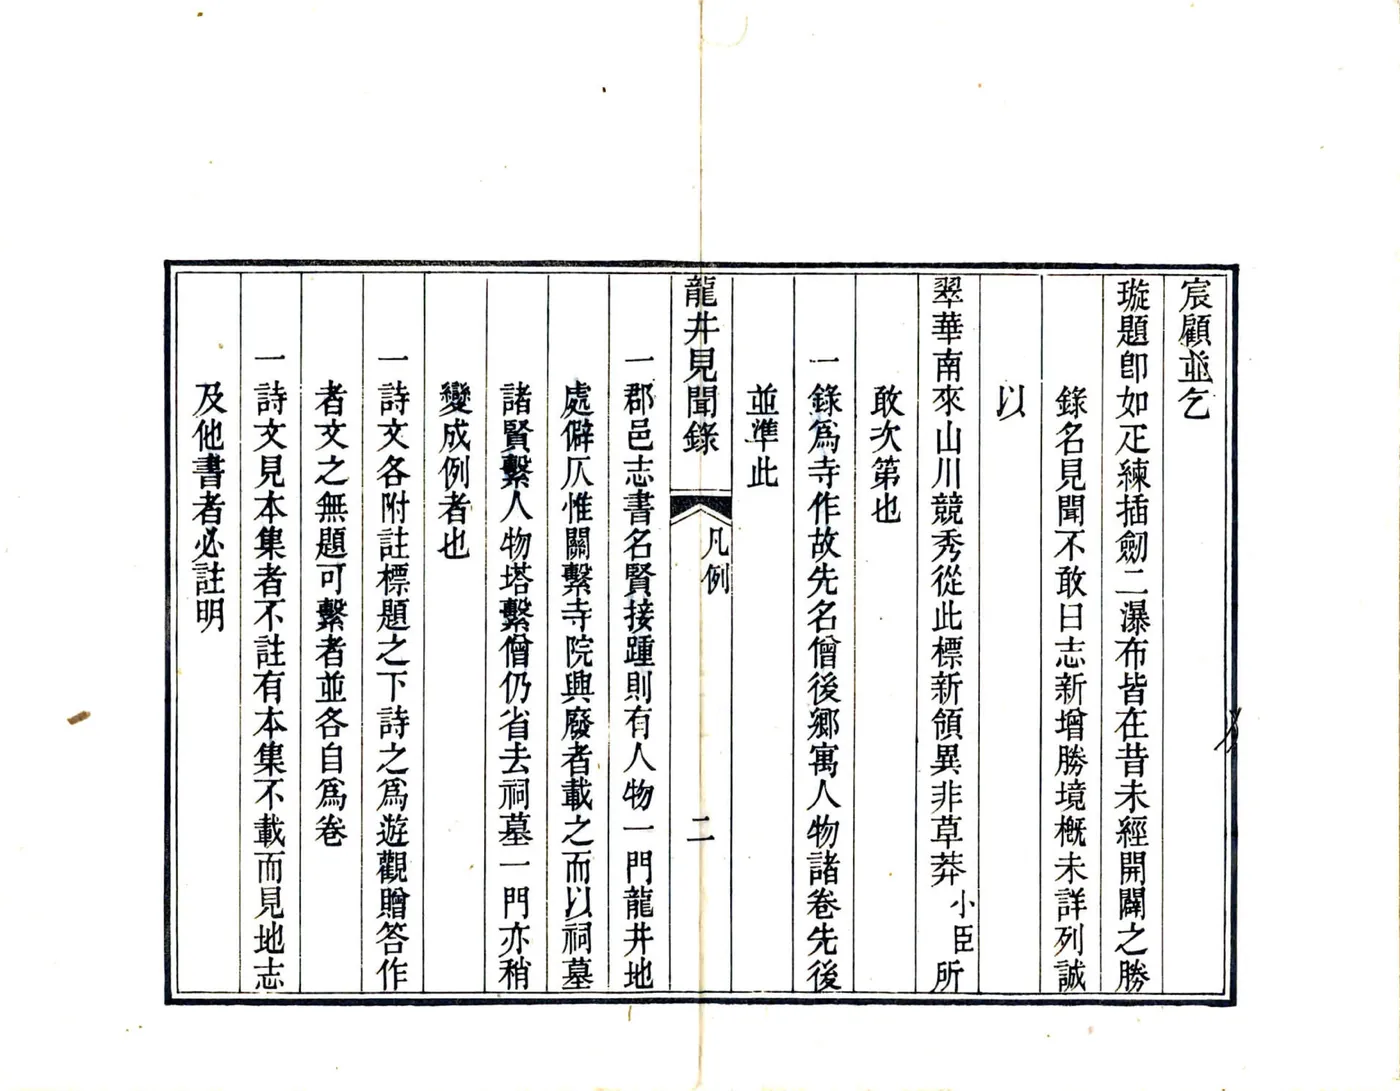 宸顧並乞
璇題卽如疋練插劒二瀑布皆在昔未經開闢之勝
錄名見聞不敢曰志新增勝境概未詳列誠
以
翠華南來山川競秀從此標新領異非草莽小臣所
敢次第也
一錄爲寺作故先名僧後鄉寓人物諸卷先後
並準此
龍井見聞錄 凡例 二
一郡邑志書名賢接踵則有人物一門龍井地
處僻仄惟關繫寺院興廢者載之而以祠墓
諸賢繫人物塔繫僧仍省去祠墓一門亦稍
變成例者也
一詩文各附註標題之下詩之爲遊觀贈答作
者文之無題可繫者並各自爲卷
一詩文見本集者不註有本集不載而見地志
及他書者必註明